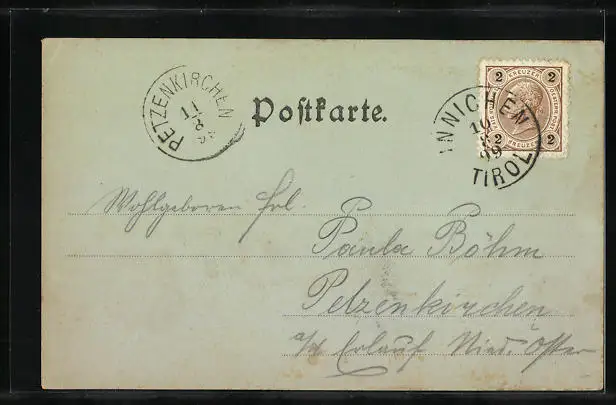 PETZENKIRCHEN
11
8
99
Postkarte.
2 KREUZER 2
2 KREUZER 2
INNICHEN
10
8
99
TIROL
Wohlgeboren Frl.
Paula Böhm
Petzenkirchen
a/d Erlauf Nied. Öster